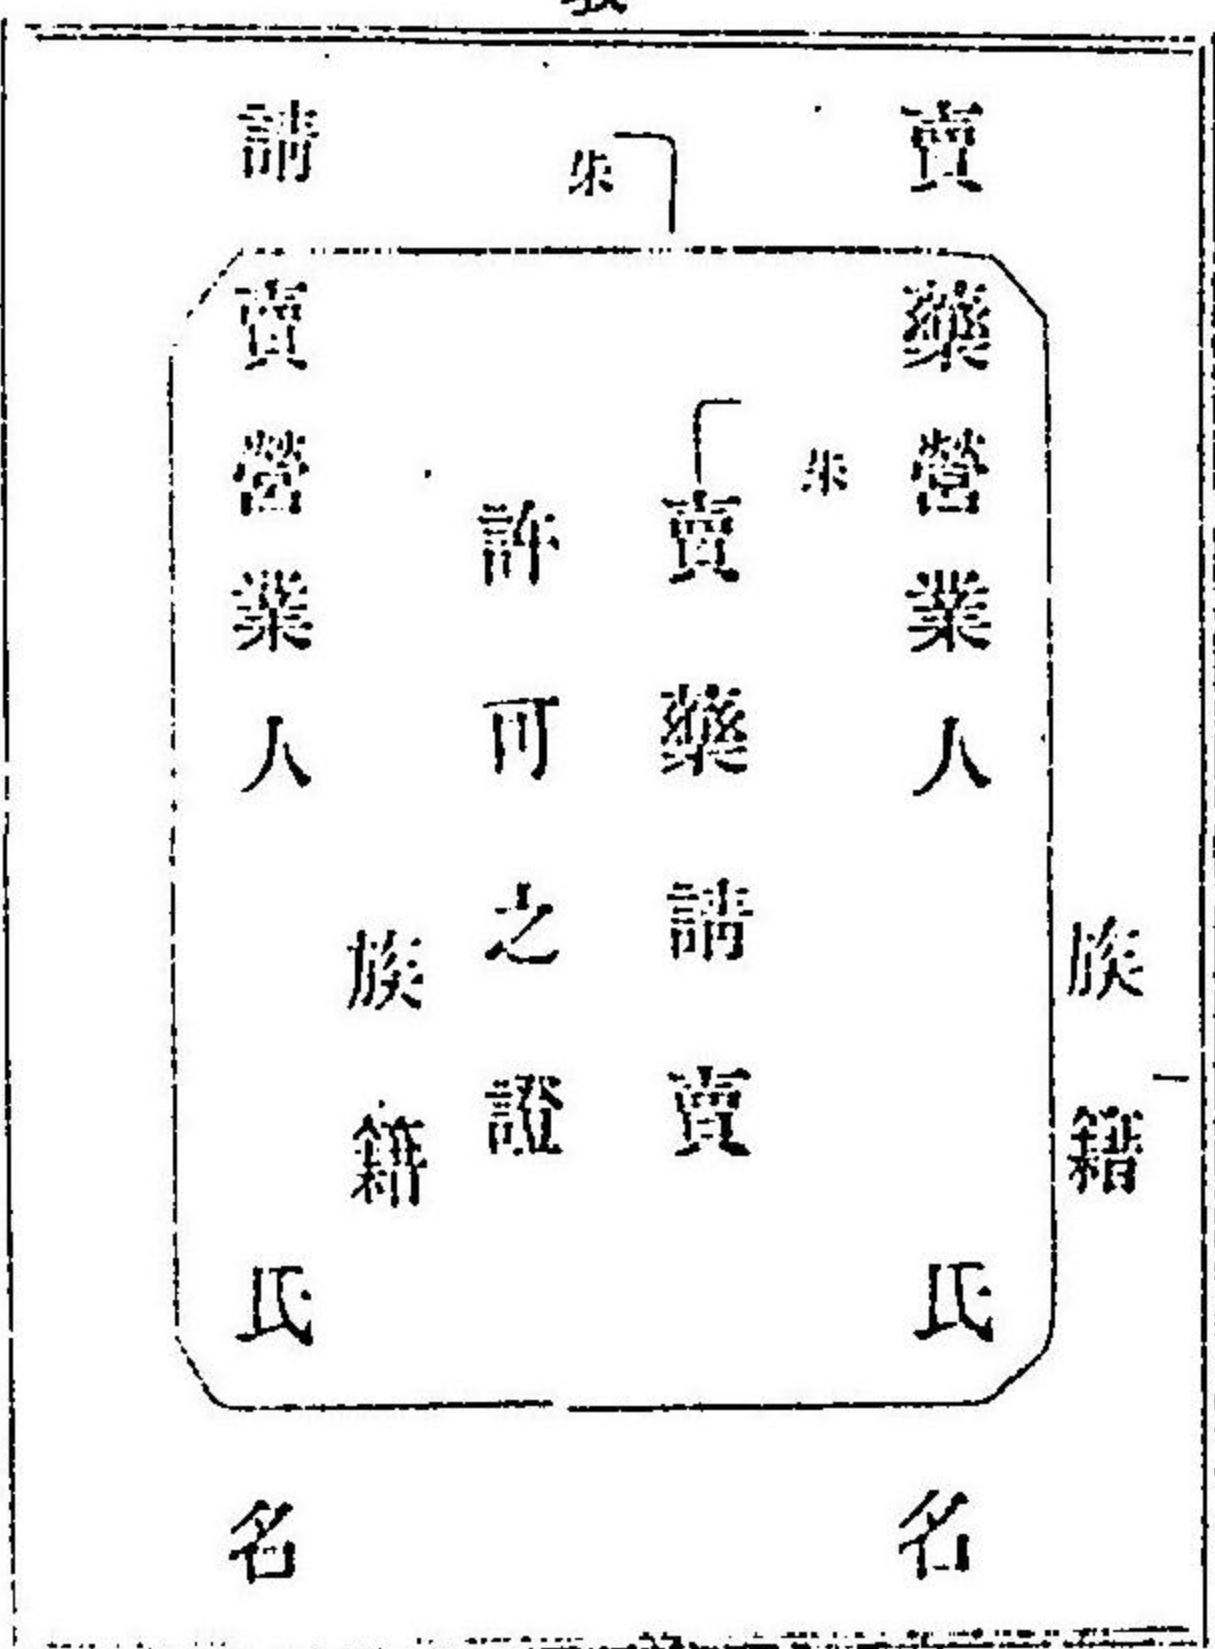 族籍
賣藥營業人 氏名
朱
賣藥請賣
朱
許可之證
族籍
請賣營業人 氏名